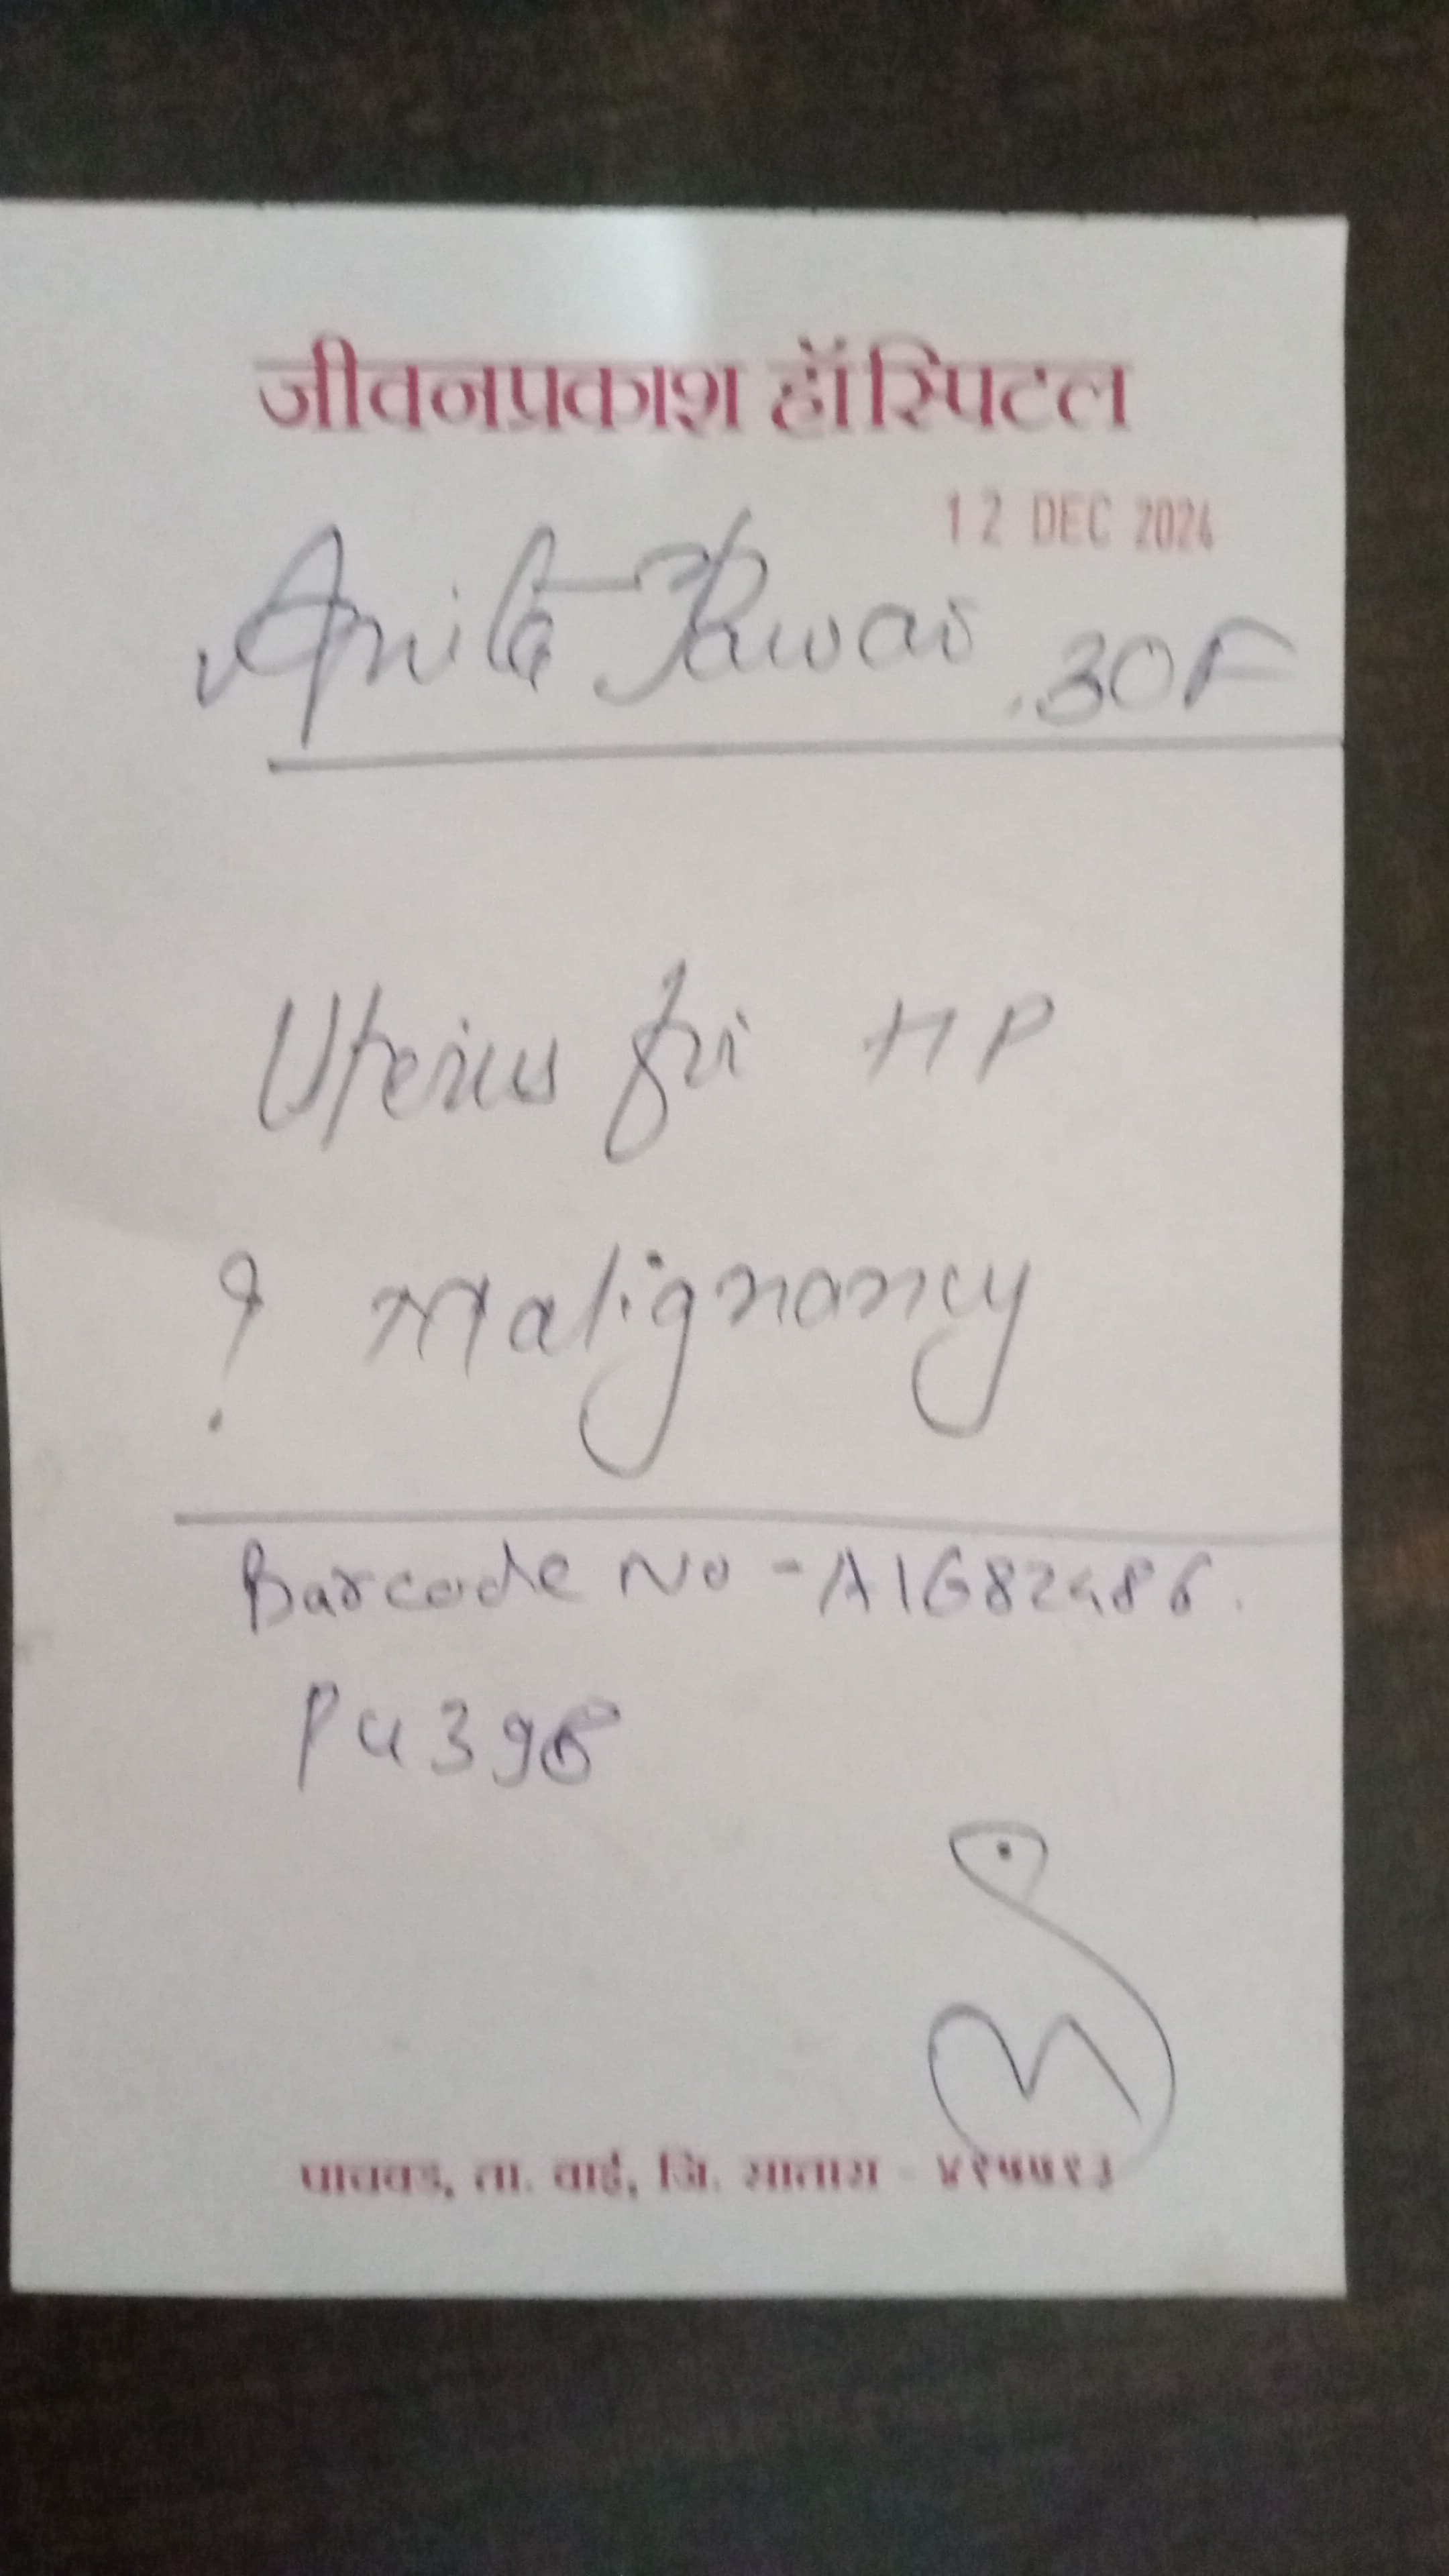 जीवनप्रकाश हॉस्पिटल
12 DEC 2024
Anita Pawar 30F
Uterus for HP
? Malignancy
Barcode No - A1682486.
PU398
पाचवड, ता. वाई, जि. सातारा - ४१५५१३